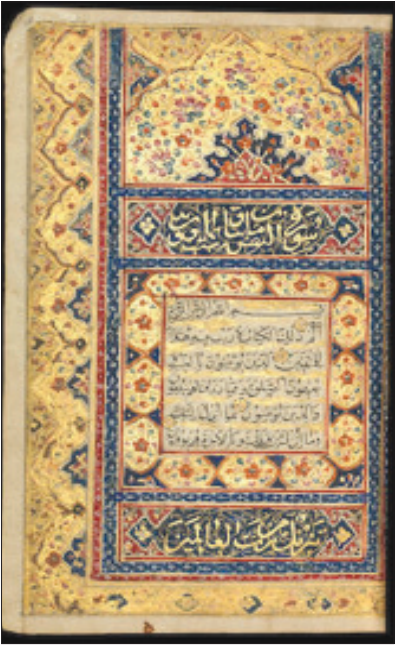 سورة
بسم الله الرحمن الرحيم
الم ذلك الكتاب لا ريب فيه هدى
للمتقين الذين يؤمنون بالغيب
ويقيمون الصلوة ومما رزقناهم ينفقون
والذين يؤمنون بما انزل اليك
وما انزل من قبلك وبالاخرة هم يوقنون
تنزيل من رب العالمين